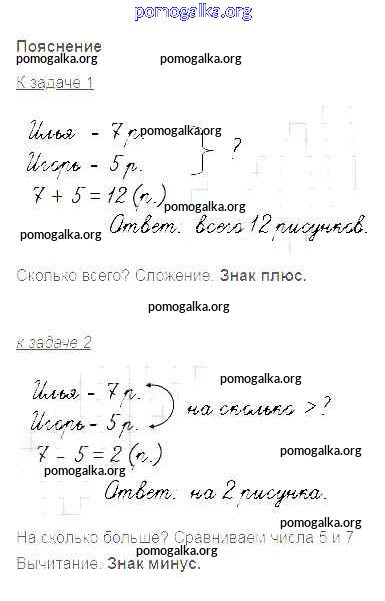 pomogalka.org
Пояснение
pomogalka.org pomogalka.org
К задаче 1
Илья - 7 р. pomogalka.org
Игорь - 5 р. } ?
7 + 5 = 12 (п.)
pomogalka.org
Ответ: всего 12 рисунков.
pomogalka.org
Сколько всего? Сложение. Знак плюс.
pomogalka.org
к задаче 2
pomogalka.org
Илья - 7 р.
на сколько > ?
Игорь - 5 р.
7 - 5 = 2 (п.)
pomogalka.org
pomogalka.org
Ответ: на 2 рисунка.
pomogalka.org
На сколько больше? Сравниваем числа 5 и 7
pomogalka.org
Вычитание. Знак минус.